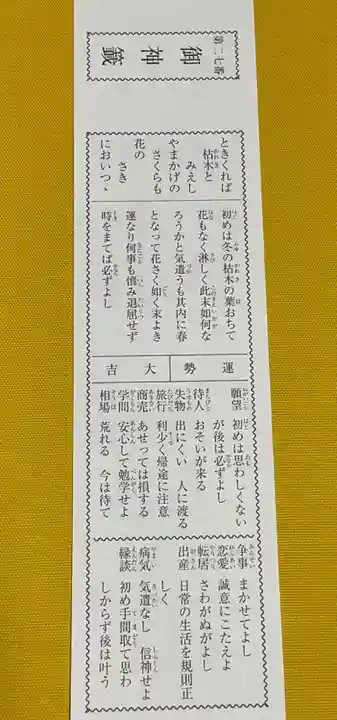 第二七番
御神籤
ときくれば
枯木と
みえし
やまかげの
さくらも
花の
さき
においつゝ
初めは冬の枯木の葉おちて
花もなく淋しく此末如何な
ろうかと気遣うも其内に春
となって花さく如く末よき
運なり何事も慎み退屈せず
時をまてば必ずよし
運勢大吉
願望 初めは思わしくない
が後は必ずよし
待人 おそいが来る
失物 出にくい 人に渡る
旅行 利少く帰途に注意
商売 あせっては損する
学問 安心して勉学せよ
相場 荒れる 今は待て
争事 まかせてよし
恋愛 誠意にこたえよ
転居 さわがぬがよし
出産 日常の生活を規則正
しく
病気 気遣なし 信神せよ
縁談 初め手間取て思わ
しからず後は叶う